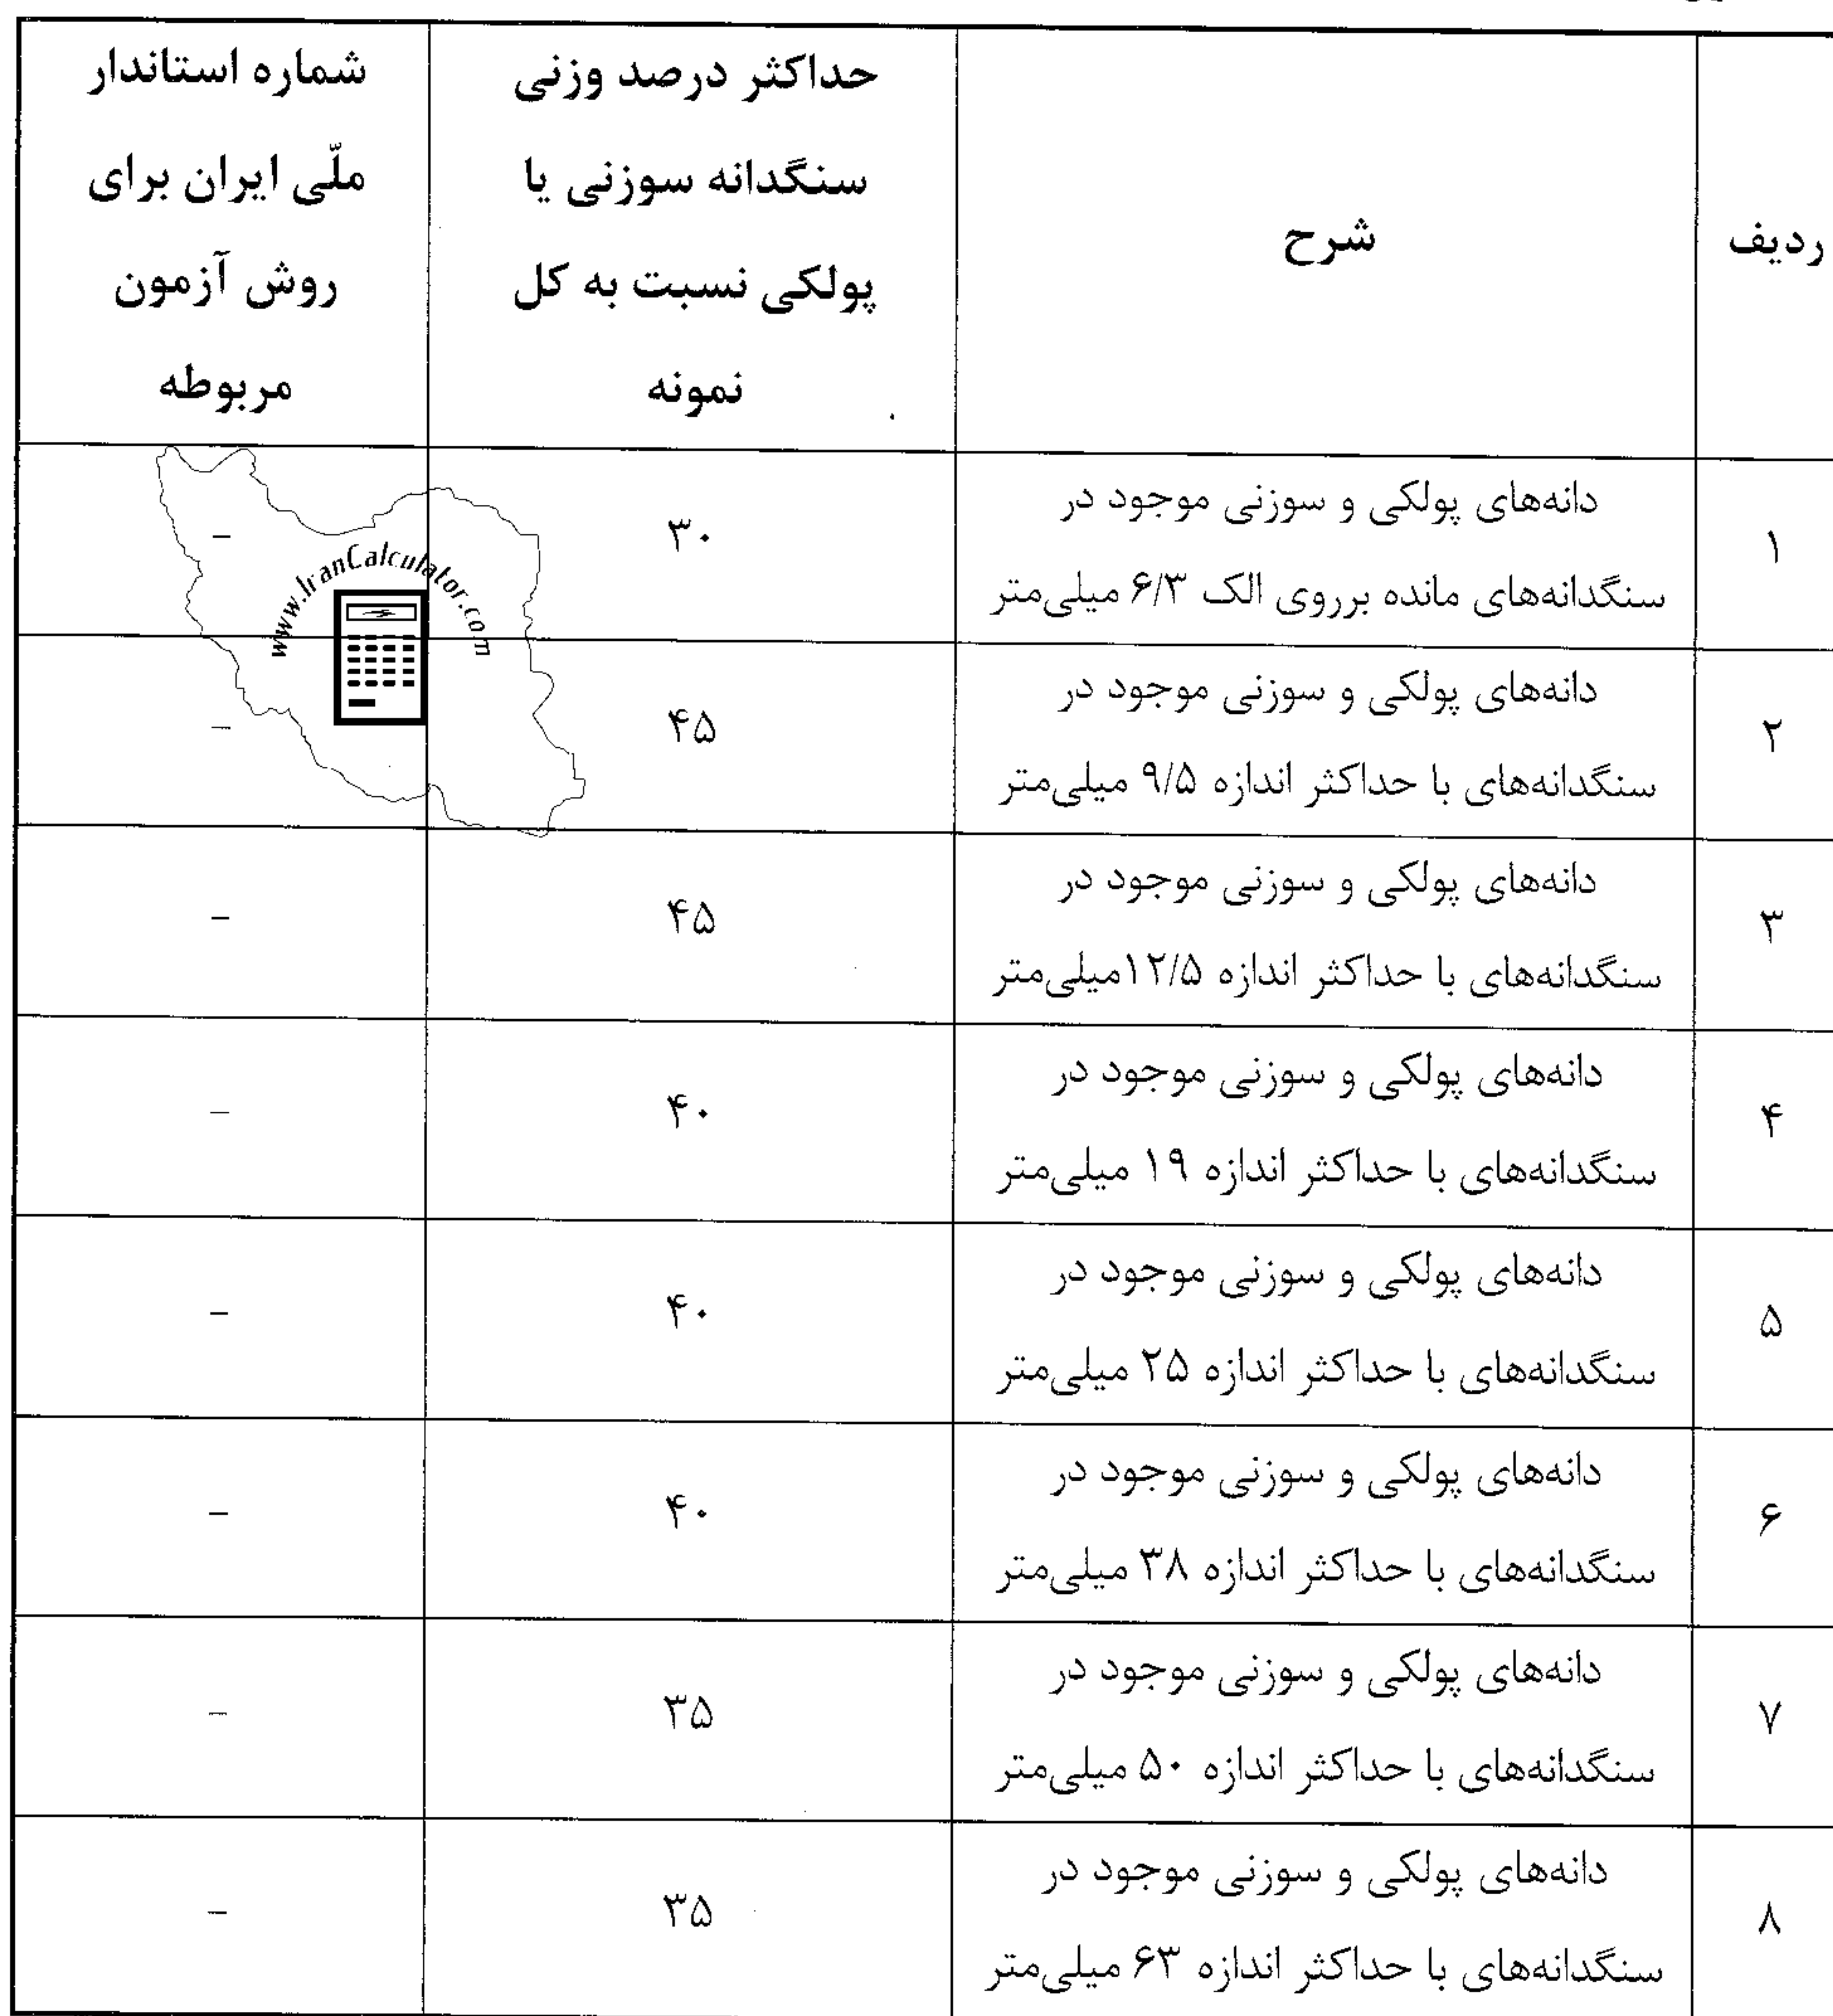 ردیف
شرح
حداکثر درصد وزنی
سنگدانه سوزنی یا
پولکی نسبت به کل
نمونه
شماره استاندار
ملّی ایران برای
روش آزمون
مربوطه
۱
دانه‌های پولکی و سوزنی موجود در
سنگدانه‌های مانده برروی الک ۶/۳ میلی‌متر
۳۰
–
۲
دانه‌های پولکی و سوزنی موجود در
سنگدانه‌های با حداکثر اندازه ۹/۵ میلی‌متر
۴۵
–
۳
دانه‌های پولکی و سوزنی موجود در
سنگدانه‌های با حداکثر اندازه ۱۲/۵میلی‌متر
۴۵
–
۴
دانه‌های پولکی و سوزنی موجود در
سنگدانه‌های با حداکثر اندازه ۱۹ میلی‌متر
۴۰
–
۵
دانه‌های پولکی و سوزنی موجود در
سنگدانه‌های با حداکثر اندازه ۲۵ میلی‌متر
۴۰
–
۶
دانه‌های پولکی و سوزنی موجود در
سنگدانه‌های با حداکثر اندازه ۳۸ میلی‌متر
۴۰
–
۷
دانه‌های پولکی و سوزنی موجود در
سنگدانه‌های با حداکثر اندازه ۵۰ میلی‌متر
۳۵
–
۸
دانه‌های پولکی و سوزنی موجود در
سنگدانه‌های با حداکثر اندازه ۶۳ میلی‌متر
۳۵
–
www.IranCalculator.com